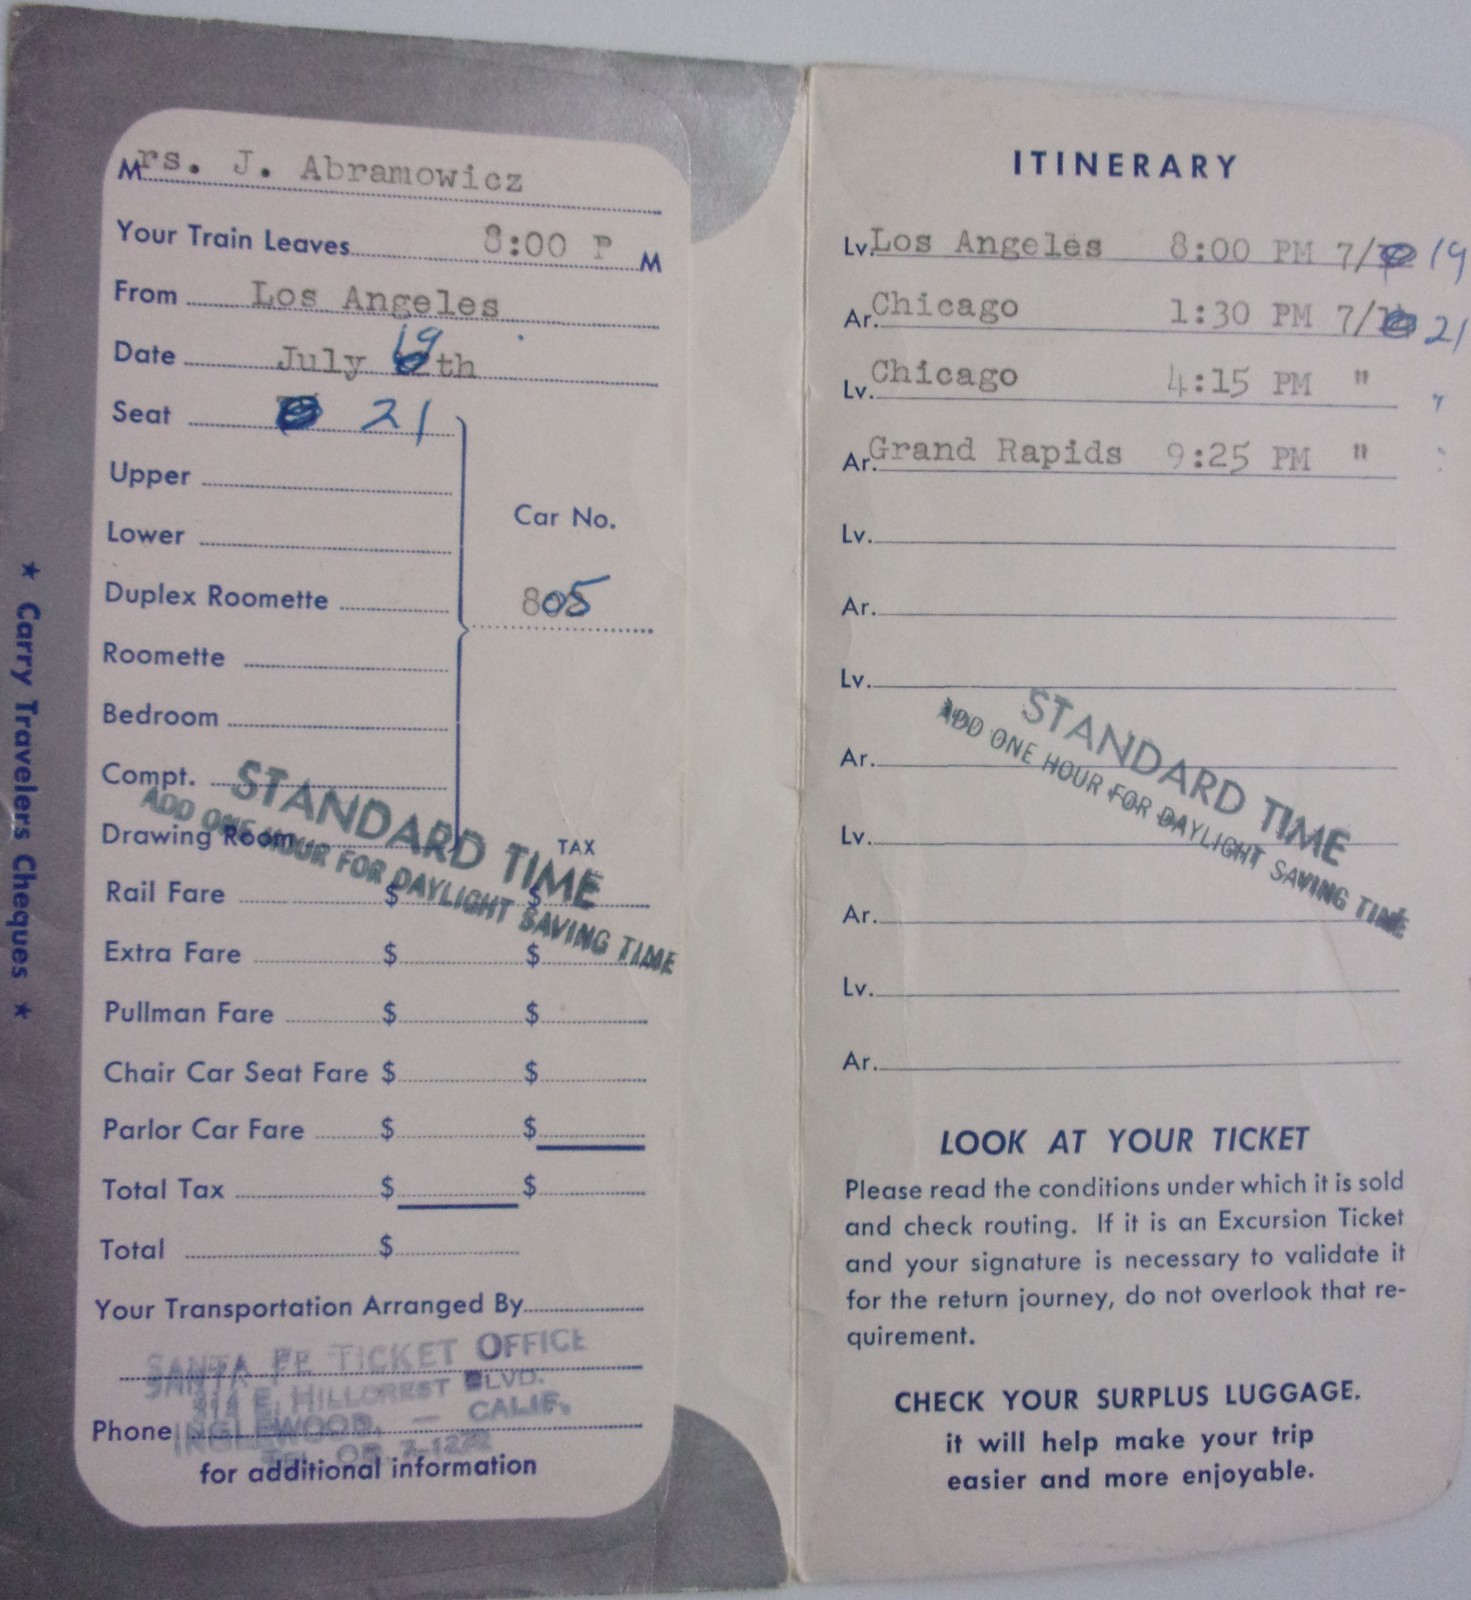 ★ Carry Travelers Cheques ★
Mrs. J. Abramowicz
Your Train Leaves 8:00 P M
From Los Angeles
Date July 19th
Seat 21
Upper
Lower
Car No.
Duplex Roomette
805
Roomette
Bedroom
Compt.
STANDARD TIME
ADD ONE HOUR FOR DAYLIGHT SAVING TIME
Drawing Room
TAX
Rail Fare $ $
Extra Fare $ $
Pullman Fare $ $
Chair Car Seat Fare $ $
Parlor Car Fare $ $
Total Tax $ $
Total $
Your Transportation Arranged By
SANTA FE TICKET OFFICE
E. HILLCREST BLVD.
INGLEWOOD, — CALIF.
Phone
TEL. OR.
for additional information
ITINERARY
Lv. Los Angeles 8:00 PM 7/ 19
Ar. Chicago 1:30 PM 7/ 21
Lv. Chicago 4:15 PM " "
Ar. Grand Rapids 9:25 PM "
Lv.
Ar.
Lv.
STANDARD TIME
ADD ONE HOUR FOR DAYLIGHT SAVING TIME
Ar.
Lv.
Ar.
Lv.
Ar.
LOOK AT YOUR TICKET
Please read the conditions under which it is sold
and check routing. If it is an Excursion Ticket
and your signature is necessary to validate it
for the return journey, do not overlook that re-
quirement.
CHECK YOUR SURPLUS LUGGAGE.
it will help make your trip
easier and more enjoyable.